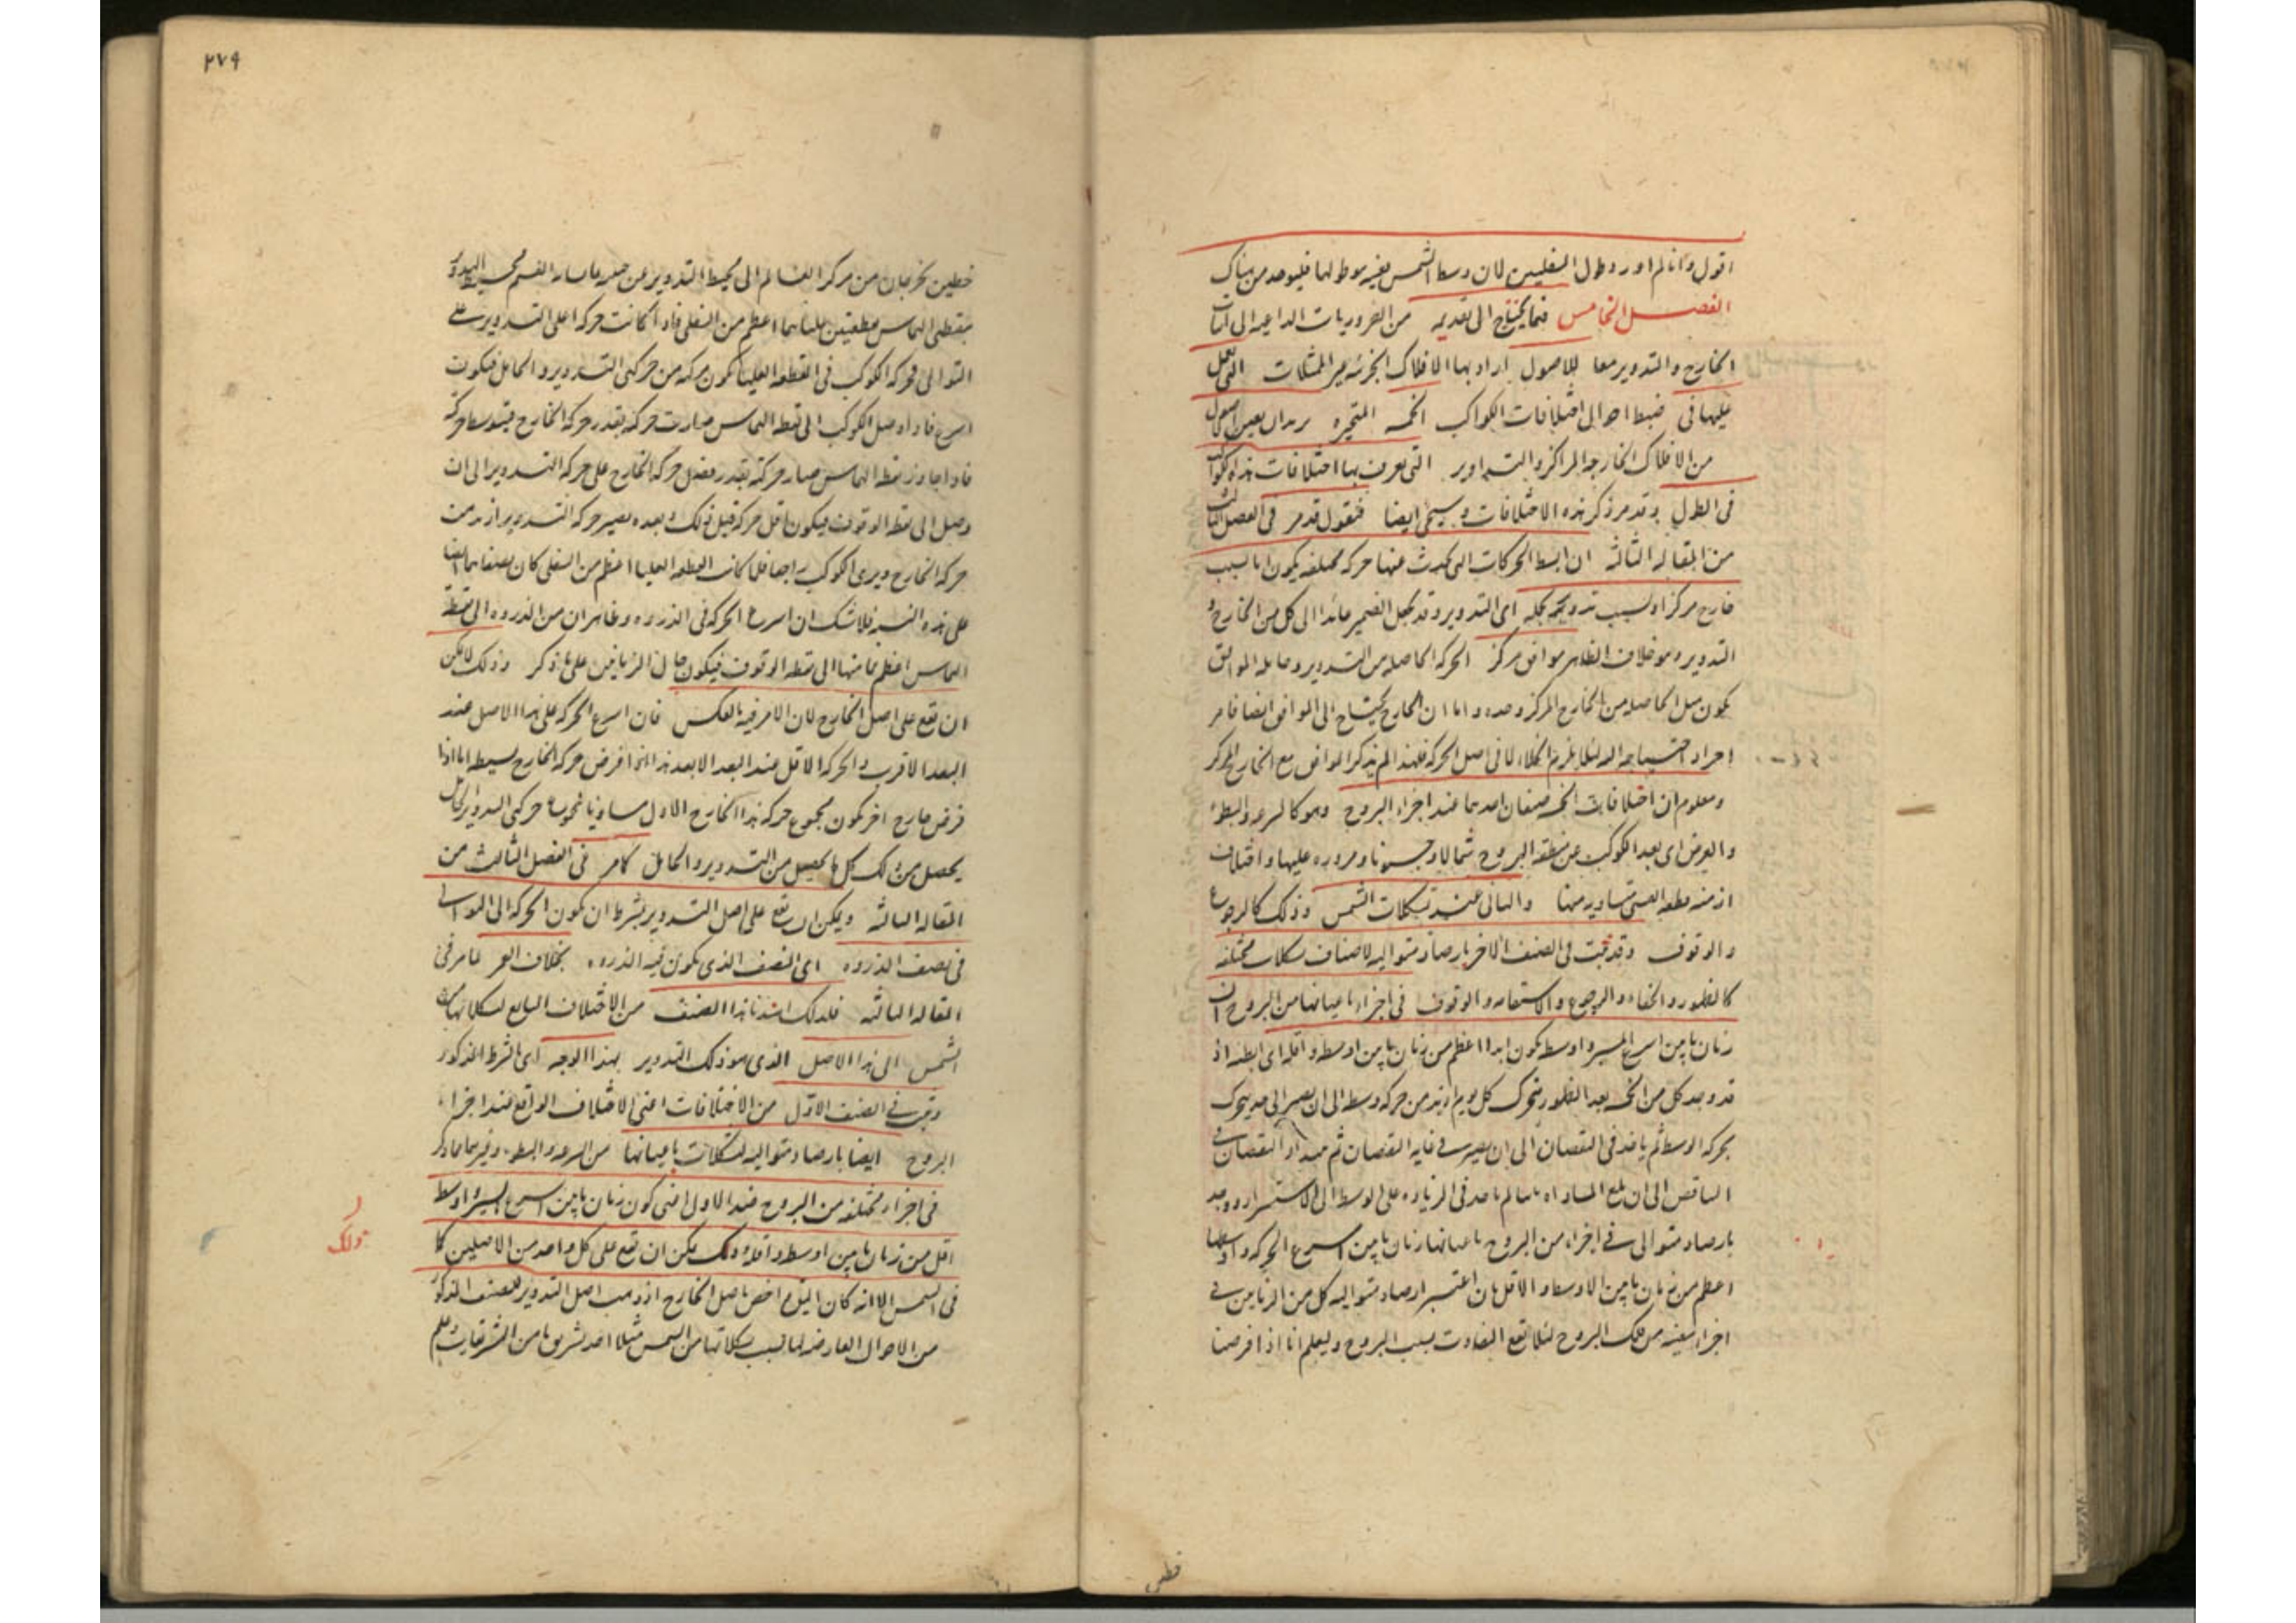 اقول وانا لم اورد طول السفليين لان وسط الشمس بعينه وسط لهما فليوجد من هناك
الفصل الخامس فيما يحتاج الى تقديمه من الضروريات الداعية الى اثبات
الخارج والتدوير معا للاصول اراد بها الافلاك الجزئية غير الممثلات التي يعمل
عليها في ضبط احوال اختلافات الكواكب الخمسة المتحيرة يريد ان يعين اصول
من الافلاك الخارجة المراكز والتداوير التي يعرف بها اختلافات هذه الكواكب
في الطول وقد مر ذكر هذه الاختلافات وسيجئ ايضا فنقول قد مر في الفصل الثالث
من المقالة الثالثة ان ابسط الحركات التي يحدث منها حركة مختلفة يكون اما بسبب
خارج مركز او بسبب تدوير يحمله اي التدوير وقد يجعل الضمير عائدا الى كل من الخارج و
التدوير وهو خلاف الظاهر موافق مركز الحركة الحاصلة من التدوير وحامله الموافق
يكون مثل الحاصلة من الخارج المركز وحده واما ان الخارج يحتاج الى الموافق ايضا فامر
اخر اذ احتياجه اليه لئلا يلزم الخلاء لا في اصل الحركة فلهذا لم يذكر الموافق مع الخارج المركز
ومعلوم ان اختلافات الخمسة صنفان احدهما عند اجزاء البروج وهو كالسرعة والبطؤ
والعرض اي بعد الكوكب عن منطقة البروج شمالا وجنوبا ومروره عليها واختلاف
ازمنة قطعه القسي متساوية منها والثاني عند تشكلات الشمس وذلك كالرجوع
والوقوف وقد ثبت في الصنف الاخر بارصاد متوالية لاصناف تشكلات مختلفة
كالظهور والخفاء والرجوع والاستقامة والوقوف في اجزاء باعيانها من البروج ان
زمان ما بين اسرع المسير واوسطه يكون ابدا اعظم من زمان ما بين اوسطه واقله اي ابطئه اذ
قد وجد كل من الخمسة بعد الظهور يتحرك كل يوم ازيد من حركة وسطه الى ان يصير الى حد يتحرك
بحركة الوسط ثم ياخذ في النقصان الى ان يصير في غاية النقصان ثم
الناقص الى ان يبلغ المساواه ثم ياخذ في الزيادة على الوسط الى الاستمرار ووجد
بارصاد متوالى في اجزاء من البروج باعيانها زمان ما بين اسرع الحركة واوسطها
اعظم من زمان ما بين الاوسط والاقل بان اعتبر ارصاد متوالية كل من الزمانين في
اجزاء بعينه من تلك البروج لئلا يقع التفاوت بسبب البروج وليعلم انا اذا فرضنا
قطى
٢٧٩
خطين يخرجان من مركز العالم الى محيط التدوير عن جنبيه يماسانه انقسم محيط التدوير
بنقطتي التماس بقطعتين عليا هما اعظم من السفلى فاذا كانت حركة اعلى التدوير على
التوالي فحركة الكوكب في القطعة العليا يكون مركبة من حركتي التدوير والحامل فيكون
اسرع فاذا وصل الكوكب الى نقطة التماس صارت حركته بقدر حركة الخارج فيتوسط حركته
فاذا جاوز نقطة التماس صار حركته بقدر فضل حركة الخارج على حركة التدوير الى ان
وصل الى نقطة الوقوف فيكون اقل حركة قبل ذلك وبعده يصير حركة التدوير ازيد من
حركة الخارج ويرى الكوكب راجعا فلما كانت القطعة العليا اعظم من السفلى كان نصفاهما ايضا
على هذه النسبة فلا شك ان اسرع الحركة في الذروه وظاهر ان من الذروه الى نقطة
التماس اعظم مما منها الى نقطة الوقوف فيكون حال الزمانين على ما ذكر وذلك لا يمكن
ان يقع على اصل الخارج لان الامر فيه بالعكس فان اسرع الحركة على هذا الاصل عند
البعد الاقرب والحركة الاقل عند البعد الابعد هذا اذا فرض حركة الخارج بسيطه اما اذا
فرض خارج اخر يكون مجموع حركة هذا الخارج الاول مساويا لمجموع حركتي التدوير والحامل
يحصل من ذلك كل ما يحصل من التدوير والحامل كما مر في الفصل الثالث من
المقالة الثالثة ويمكن ان يقع على اصل التدوير بشرط ان يكون الحركة الى التوالي
في نصف الذروه اي النصف الذي يكون فيه الذروه بخلاف القمر لما مر في
المقالة الثالثة فلذلك اسندنا هذا الصنف من الاختلاف التابع لتشكلاتها من
الشمس الى هذا الاصل الذي هو ذلك التدوير بهذا الوجه اي الشرط المذكور
وثبت في الصنف الاول من الاختلافات اعني الاختلاف الواقع عند اجزاء
البروج ايضا بارصاد متوالية لتشكلات باعيانها من السرعة والبطء وغيرهما مما ذكر
في اجزاء مختلفة من البروج ضد الاول اعني كون زمان ما بين اسرع المسير واوسطه
اقل من زمان ما بين اوسطه واقله وذلك يمكن ان يقع على كل واحد من الاصلين كما
في الشمس الا انه كان اليق واخص باصل الخارج اذ ذهب اصل التدوير للصنف المذكور
من الاحوال العارضة لها بسبب تشكلاتها من الشمس مثلا احد تشريق ما من التشريقات وعلم
وذلك